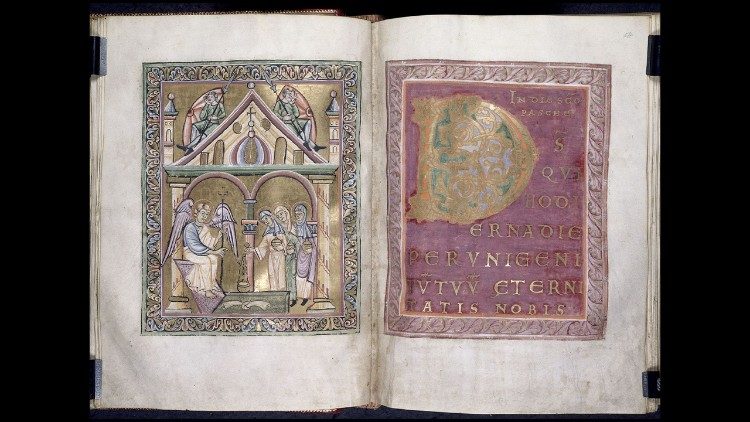 IN DIE SCO
PASCHE
D S̄
QVI
HODI
ERNA DIE
PER VNIGENI
TV̄ TVV̄ ETERNI
TATIS NOBIS